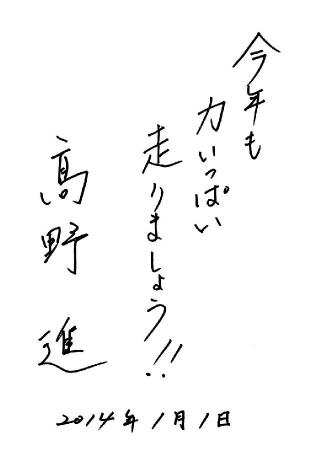 今年も
力いっぱい
走りましょう!!
髙野 進
2014年1月1日